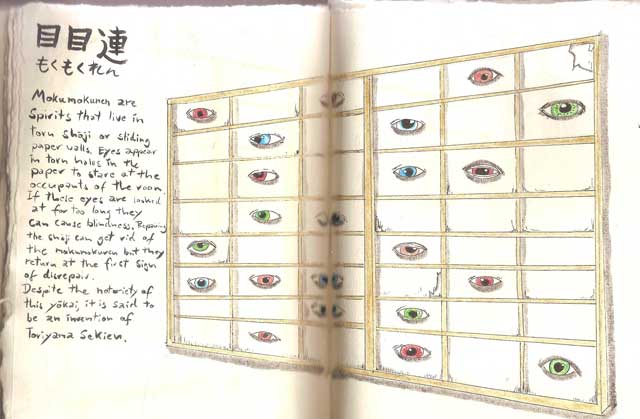 目目連
もくもくれん
Mokumokuren are
Spirits that live in
torn shōji or sliding
paper walls. Eyes appear
in torn holes in the
paper to stare at the
occupants of the room.
If these eyes are looked
at for too long they
can cause blindness. Repairing
the shōji can get rid of
the mokumokuren but they
return at the first sign
of disrepair.
Despite the notoriety of
this yōkai, it is said to
be an invention of
Toriyama Sekien.